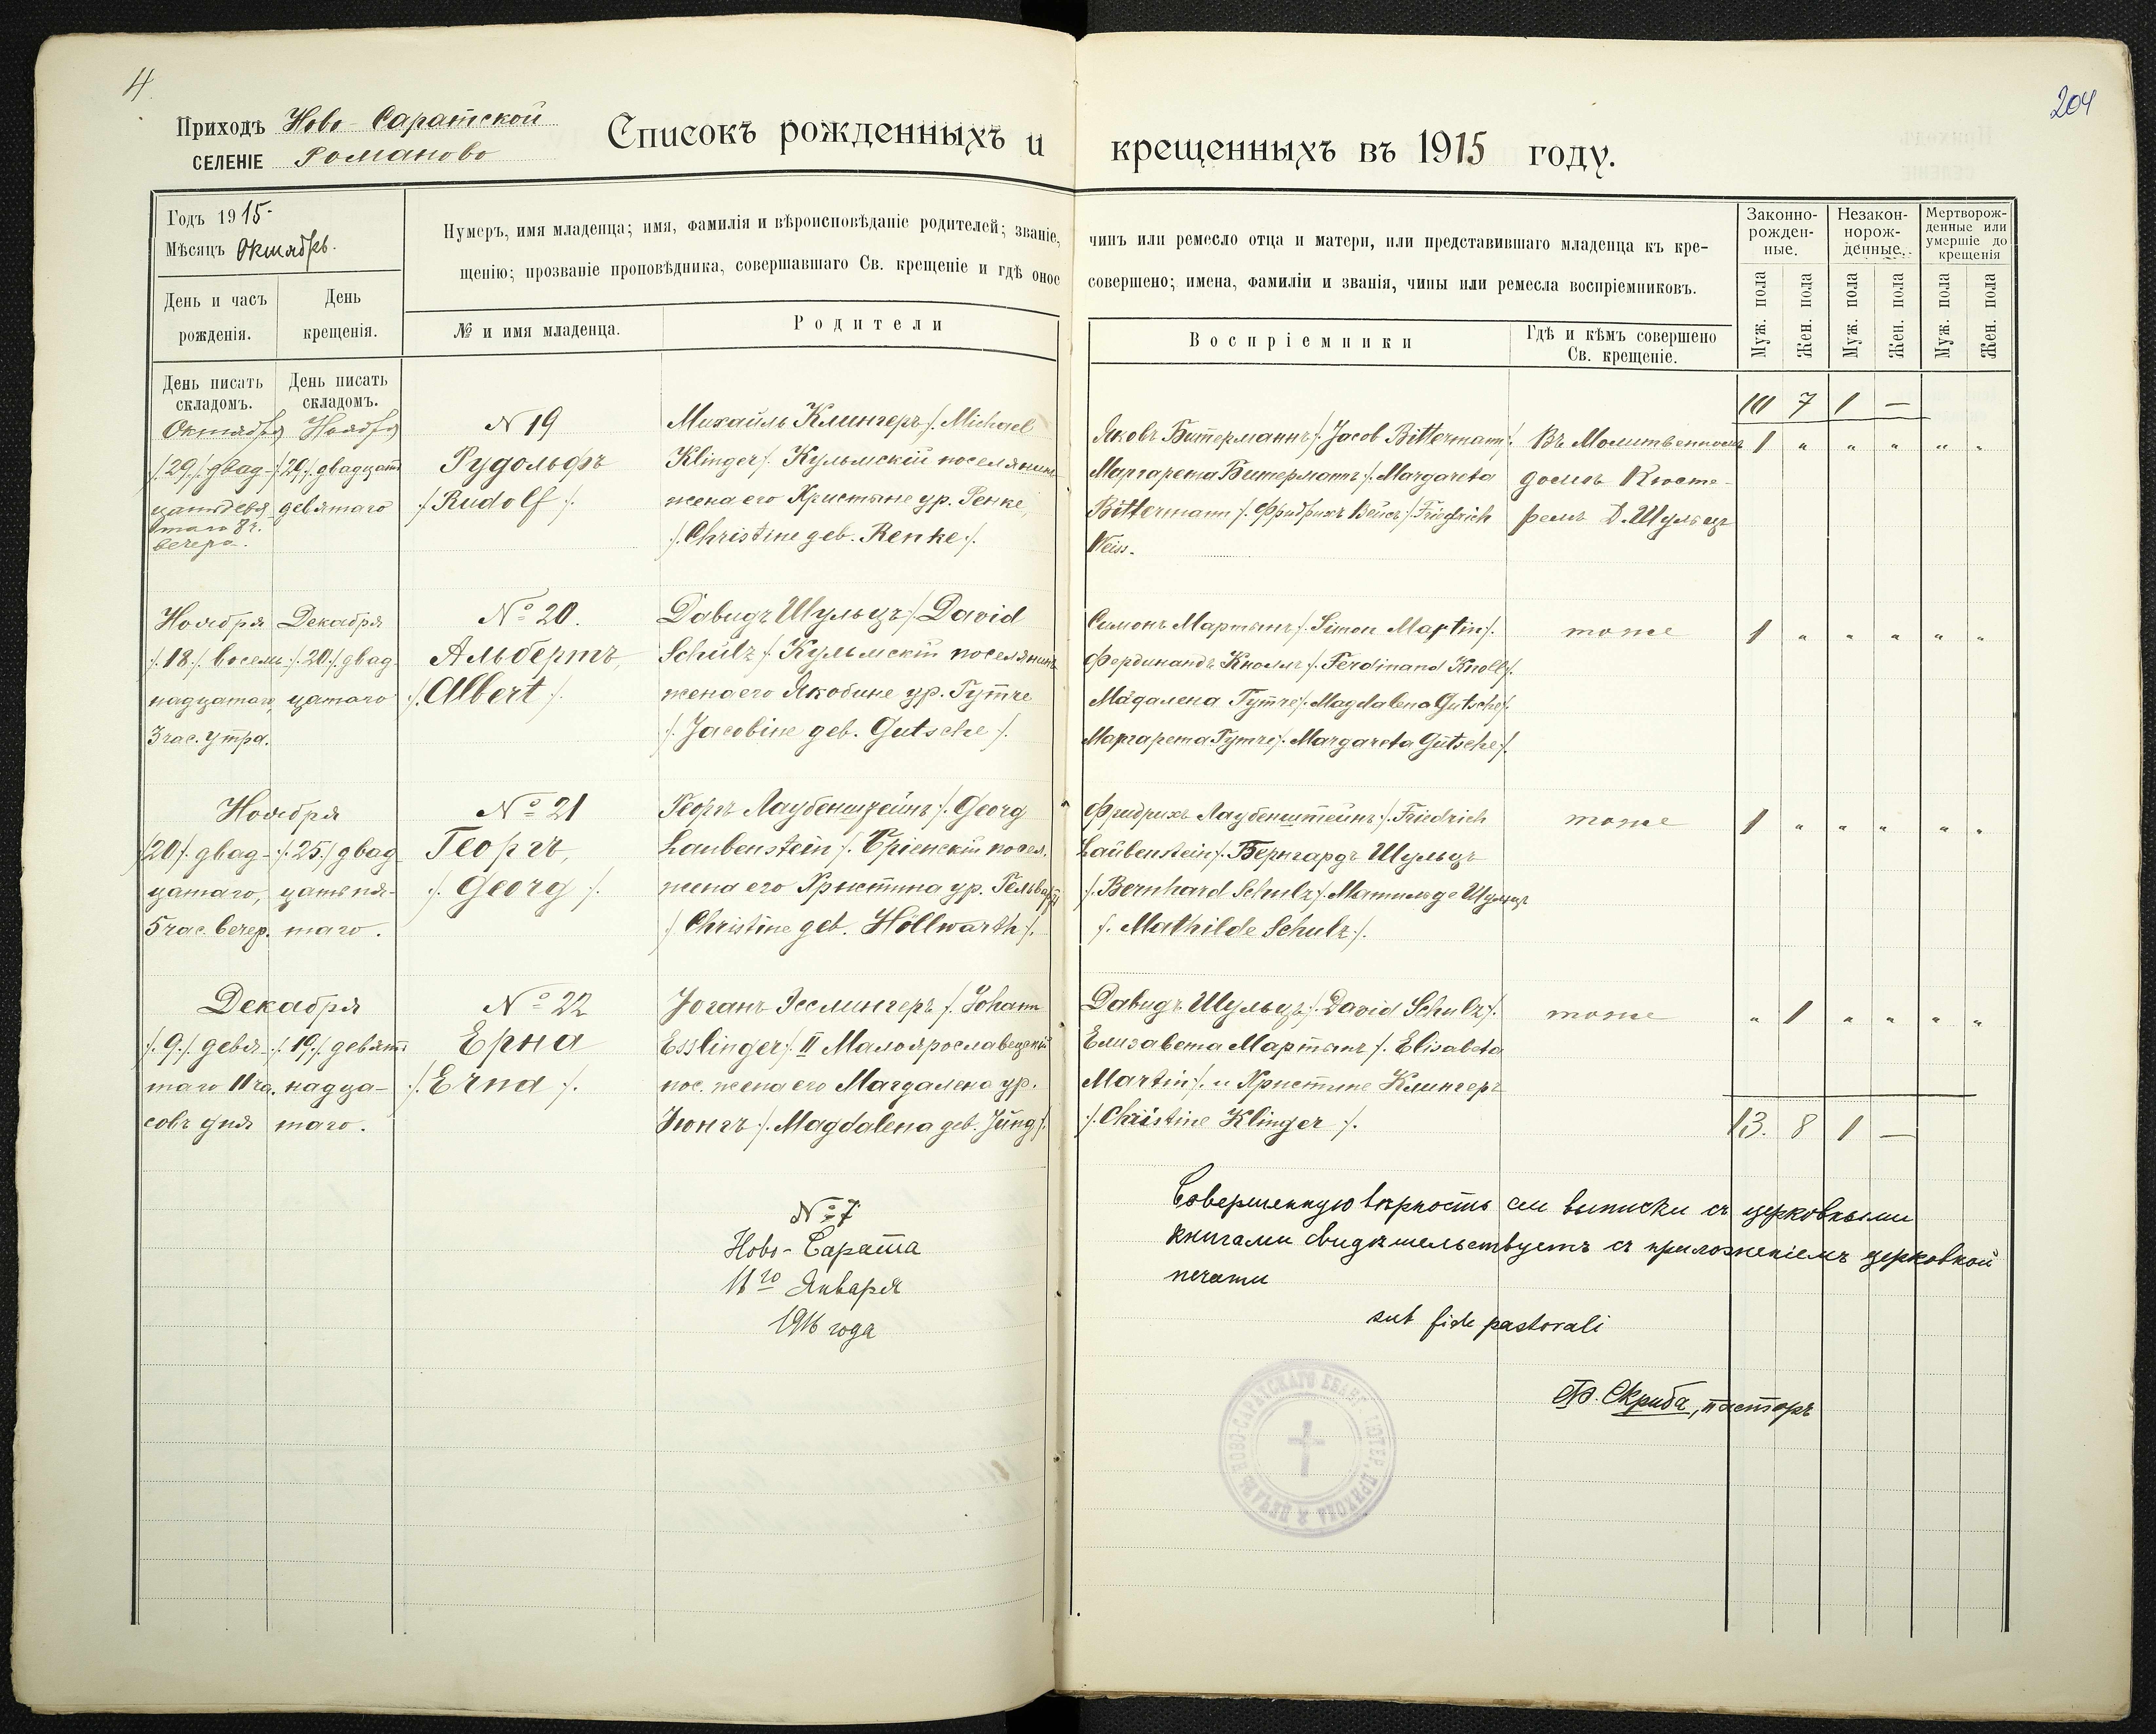 4.
204
Приходъ Ново-Саратской
СЕЛЕНІЕ Романово
Списокъ рожденныхъ и крещенныхъ въ 1915 году.
Годъ 1915.
Мѣсяцъ Октябрь.
День и часъ рожденія.
День крещенія.
Нумеръ, имя младенца; имя, фамилія и вѣроисповѣданіе родителей; званіе, чинъ или ремесло отца и матери, или представившаго младенца къ кре-
щенію; прозваніе проповѣдника, совершавшаго Св. крещеніе и гдѣ оное совершено; имена, фамиліи и званія, чины или ремесла воспріемниковъ.
№ и имя младенца.
Родители
Воспріемники
Гдѣ и кѣмъ совершено
Св. крещеніе.
Законно-
рожден-
ные.
Незакон-
норож-
денные.
Мертворож-
денные или
умершіе до
крещенія
Муж. пола
Жен. пола
Муж. пола
Жен. пола
Муж. пола
Жен. пола
День писать
складомъ.
День писать
складомъ.
10 7 1 —
Октября
/.29./ двад-
цатьдевя-
таго 8 ч.
вечера.
Ноября
/.29./ двадцать
девятаго
N 19
Рудольфъ
/. Rudolf /.
Михаилъ Клингеръ /. Michael
Klinger /. Кульмскій поселянинъ
жена его Христине ур. Ренке,
/. Christine geb. Renke /.
Яковъ Битерманнъ /. Jacob Bittermann /.
Маргарета Битерманнъ /. Margareta
Bittermann /. Фридрихъ Вейсъ /. Friedrich
Weiss.
Въ Молитвенномъ
домѣ Кюсте-
ремъ Д. Шульцъ
1 " " " " "
Ноября
/.18./ восем-
надцатаго,
3 час. утра.
Декабря
/.20./ двад-
цатаго
№ 20.
Альбертъ,
/. Albert /.
Давидъ Шульцъ /. David
Schulz /. Кульмскій поселянинъ
жена его Якобине ур. Гутче
/. Jacobine geb. Gutsche /.
Симонъ Мартинъ /. Simon Martin /.
Фердинандъ Кноллъ /. Ferdinand Knoll /.
Магдалена Гутче /. Magdalena Gutsche /.
Маргарета Гутче /. Margareta Gutsche /.
тоже
1 " " " " "
Ноября
/.20./ двад-
цатаго,
5 час. вечер.
/.25./ двад-
цать пя-
таго.
№ 21
Георгъ,
/. Georg /.
Георгъ Лаубенштейнъ /. Georg
Laubenstein /. Бріенскій посел.
жена его Христина ур. Гельвартъ
/. Christine geb. Höllwarth /.
Фридрихъ Лаубенштейнъ /. Friedrich
Laubenstein /. Бернгардъ Шульцъ
/. Bernhard Schulz /. Матильде Шульцъ
/. Mathilde Schulz /.
тоже
1 " " " " "
Декабря
/.9./ девя-
таго 11 ча-
совъ дня
/.19./ девят-
надца-
таго.
№ 22
Ерна
/. Erna /.
Іоганъ Эсслингеръ /. Johann
Esslinger /. II Малоярославецкій
пос. жена его Магдалена ур.
Юнгъ /. Magdalena geb. Jung /.
Давидъ Шульцъ /. David Schulz /.
Елизавета Мартинъ /. Elisabeta
Martin /. и Христине Клингеръ
/. Christine Klinger /.
тоже
" 1 " " " "
13. 8 1 —
№ 7
Ново-Сарата
11го Января
1916 года
Совершенную вѣрность сей выписки съ церковными
книгами свидѣтельствуетъ съ приложеніемъ церковной
печати
sub fide pastorali
Скриба, пасторъ